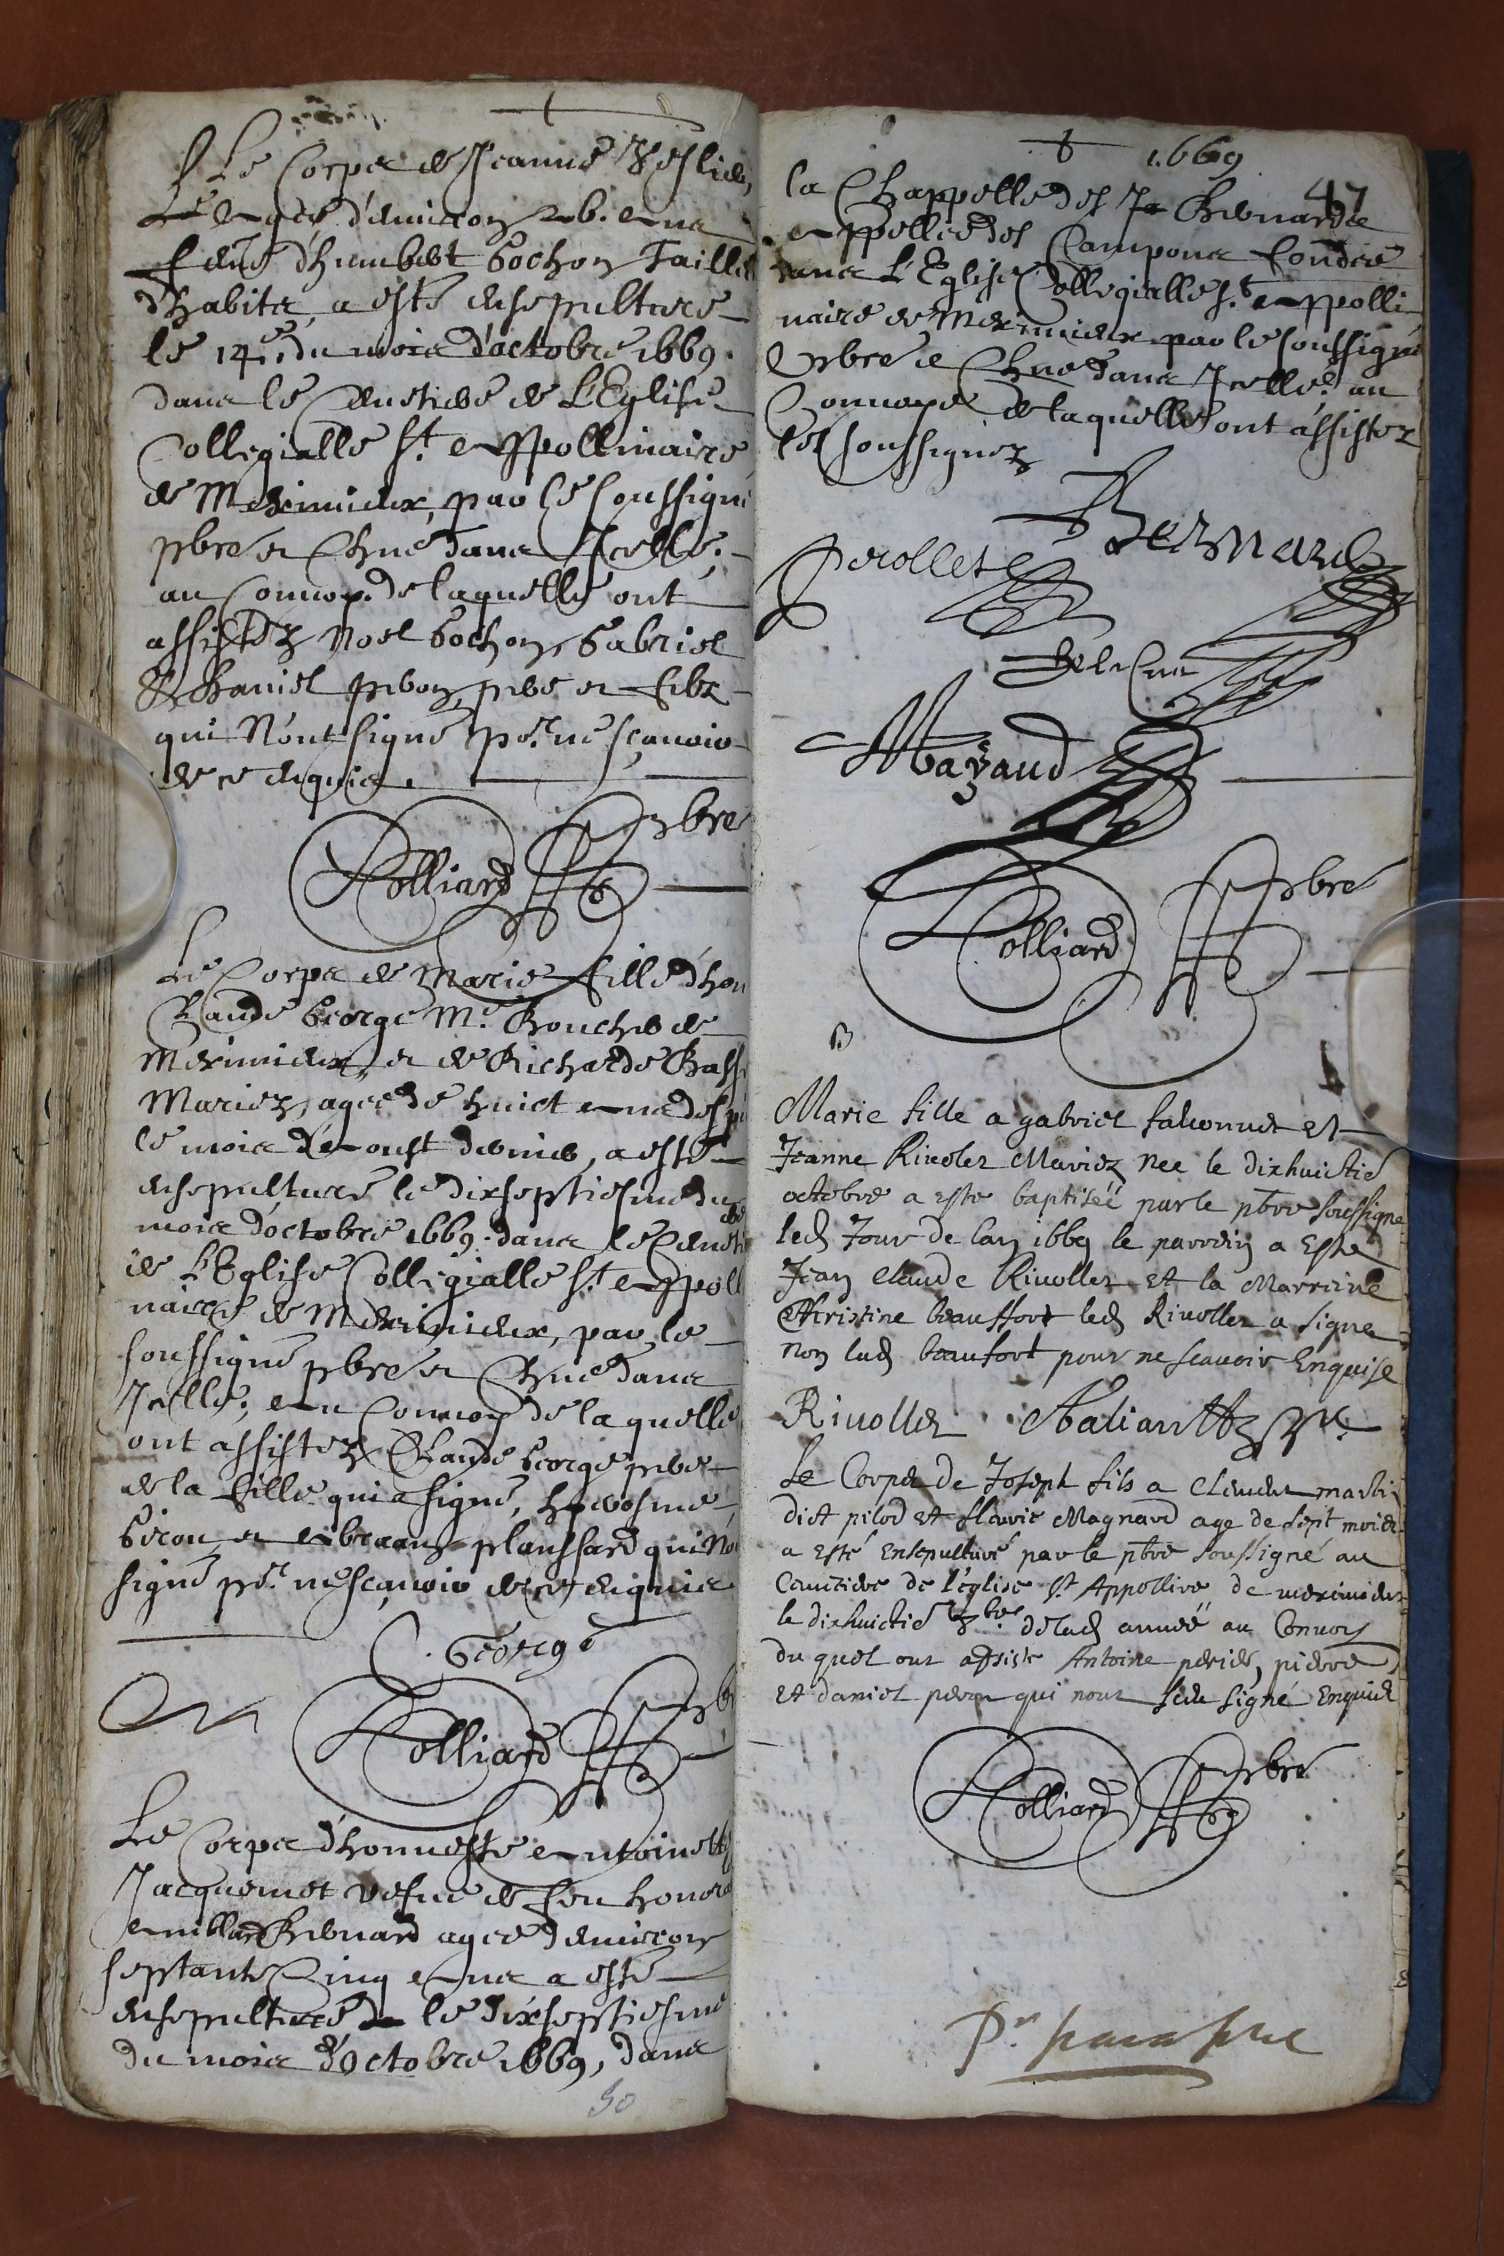 Le Corps de Jeanne
aagée d'environ 26. ans
feme d'humbert Gochon Taill
d'habits, a esté ensepulturé
le 14e. du mois d'octobre 1669.
dans le Cimetiere de L'Eglise
Collegialle St. Appollinaire
de Meximieux, par le soussigné
pbre et Chne dans Icelle,
au Convoy de laquelle ont
assistéz Noel Gochon, Gabriel
et Daniel pere et filz
qui N'ont signé pr. ne sçavoir
de ce enquis.
Colliard pbre
Le Corps de Marie fille d'hon
Claude George Me. Boucher de
Meximieux, et de Richarde
Mariez, agée de huict ans
le mois d'Aoust dernier, a esté
ensepulturé le dixseptiesme du
mois d'octobre 1669. dans le Cimetiere
de L'Eglise Collegialle St. Appoll
naire de Meximieux, par le
soussigné pbre et Chne dans
Icelle, Au Convoy de laquelle
ont assistez Claude George pere
de la fille qui a signé, hierosme
Giron et plaussard qui N'o
signé pr. ne sçavoir de ce enquis
C. George
Colliard pb
Le Corps d'honneste Antoinette
Jacquemet vefue de feu honora
Bernard agée d'environ
septante Cinq Ans a esté
ensepulturé le dixseptiesme
du mois d'octobre 1669, dans
50
1669
47
la Chappelle des Bernards
appellée des Campons fondée
dans L'Eglise Collegialle St. Appolli
naire de Meximieux par le soussigné
pbre et Chne dans Icelle. au
Convoye de laquelle ont assistez
les soussignez
Bernard
Perollet
Mazaud
Colliard pbre
B
Marie fille a gabriel falconnet et
Jeanne Riuolet Mariez nee le dixhuictie
octobre a este baptiséé par le pbre soussigne
led Jour de lan 1669 le parrein a este
Jean claude Riuollet et la Marreine
Christine beauffort led Riuollet a signe
non lad beaufort pour ne scauoir Enquise
Riuollet
Le Corps de Joseph fils a Clement marti
dict pilod et fleurie Magnard age de sept mois
a esté Ensepulturé par le pbre soussigné au
Cemitiere de l'eglise St Appollire de meximieux
le dixhuictie 8bre de lad année au Convoy
du quel ont assiste Antoine perier, pierre
et daniel peron qui nont signé Enquis
Colliard pbre
Pr. paraphe